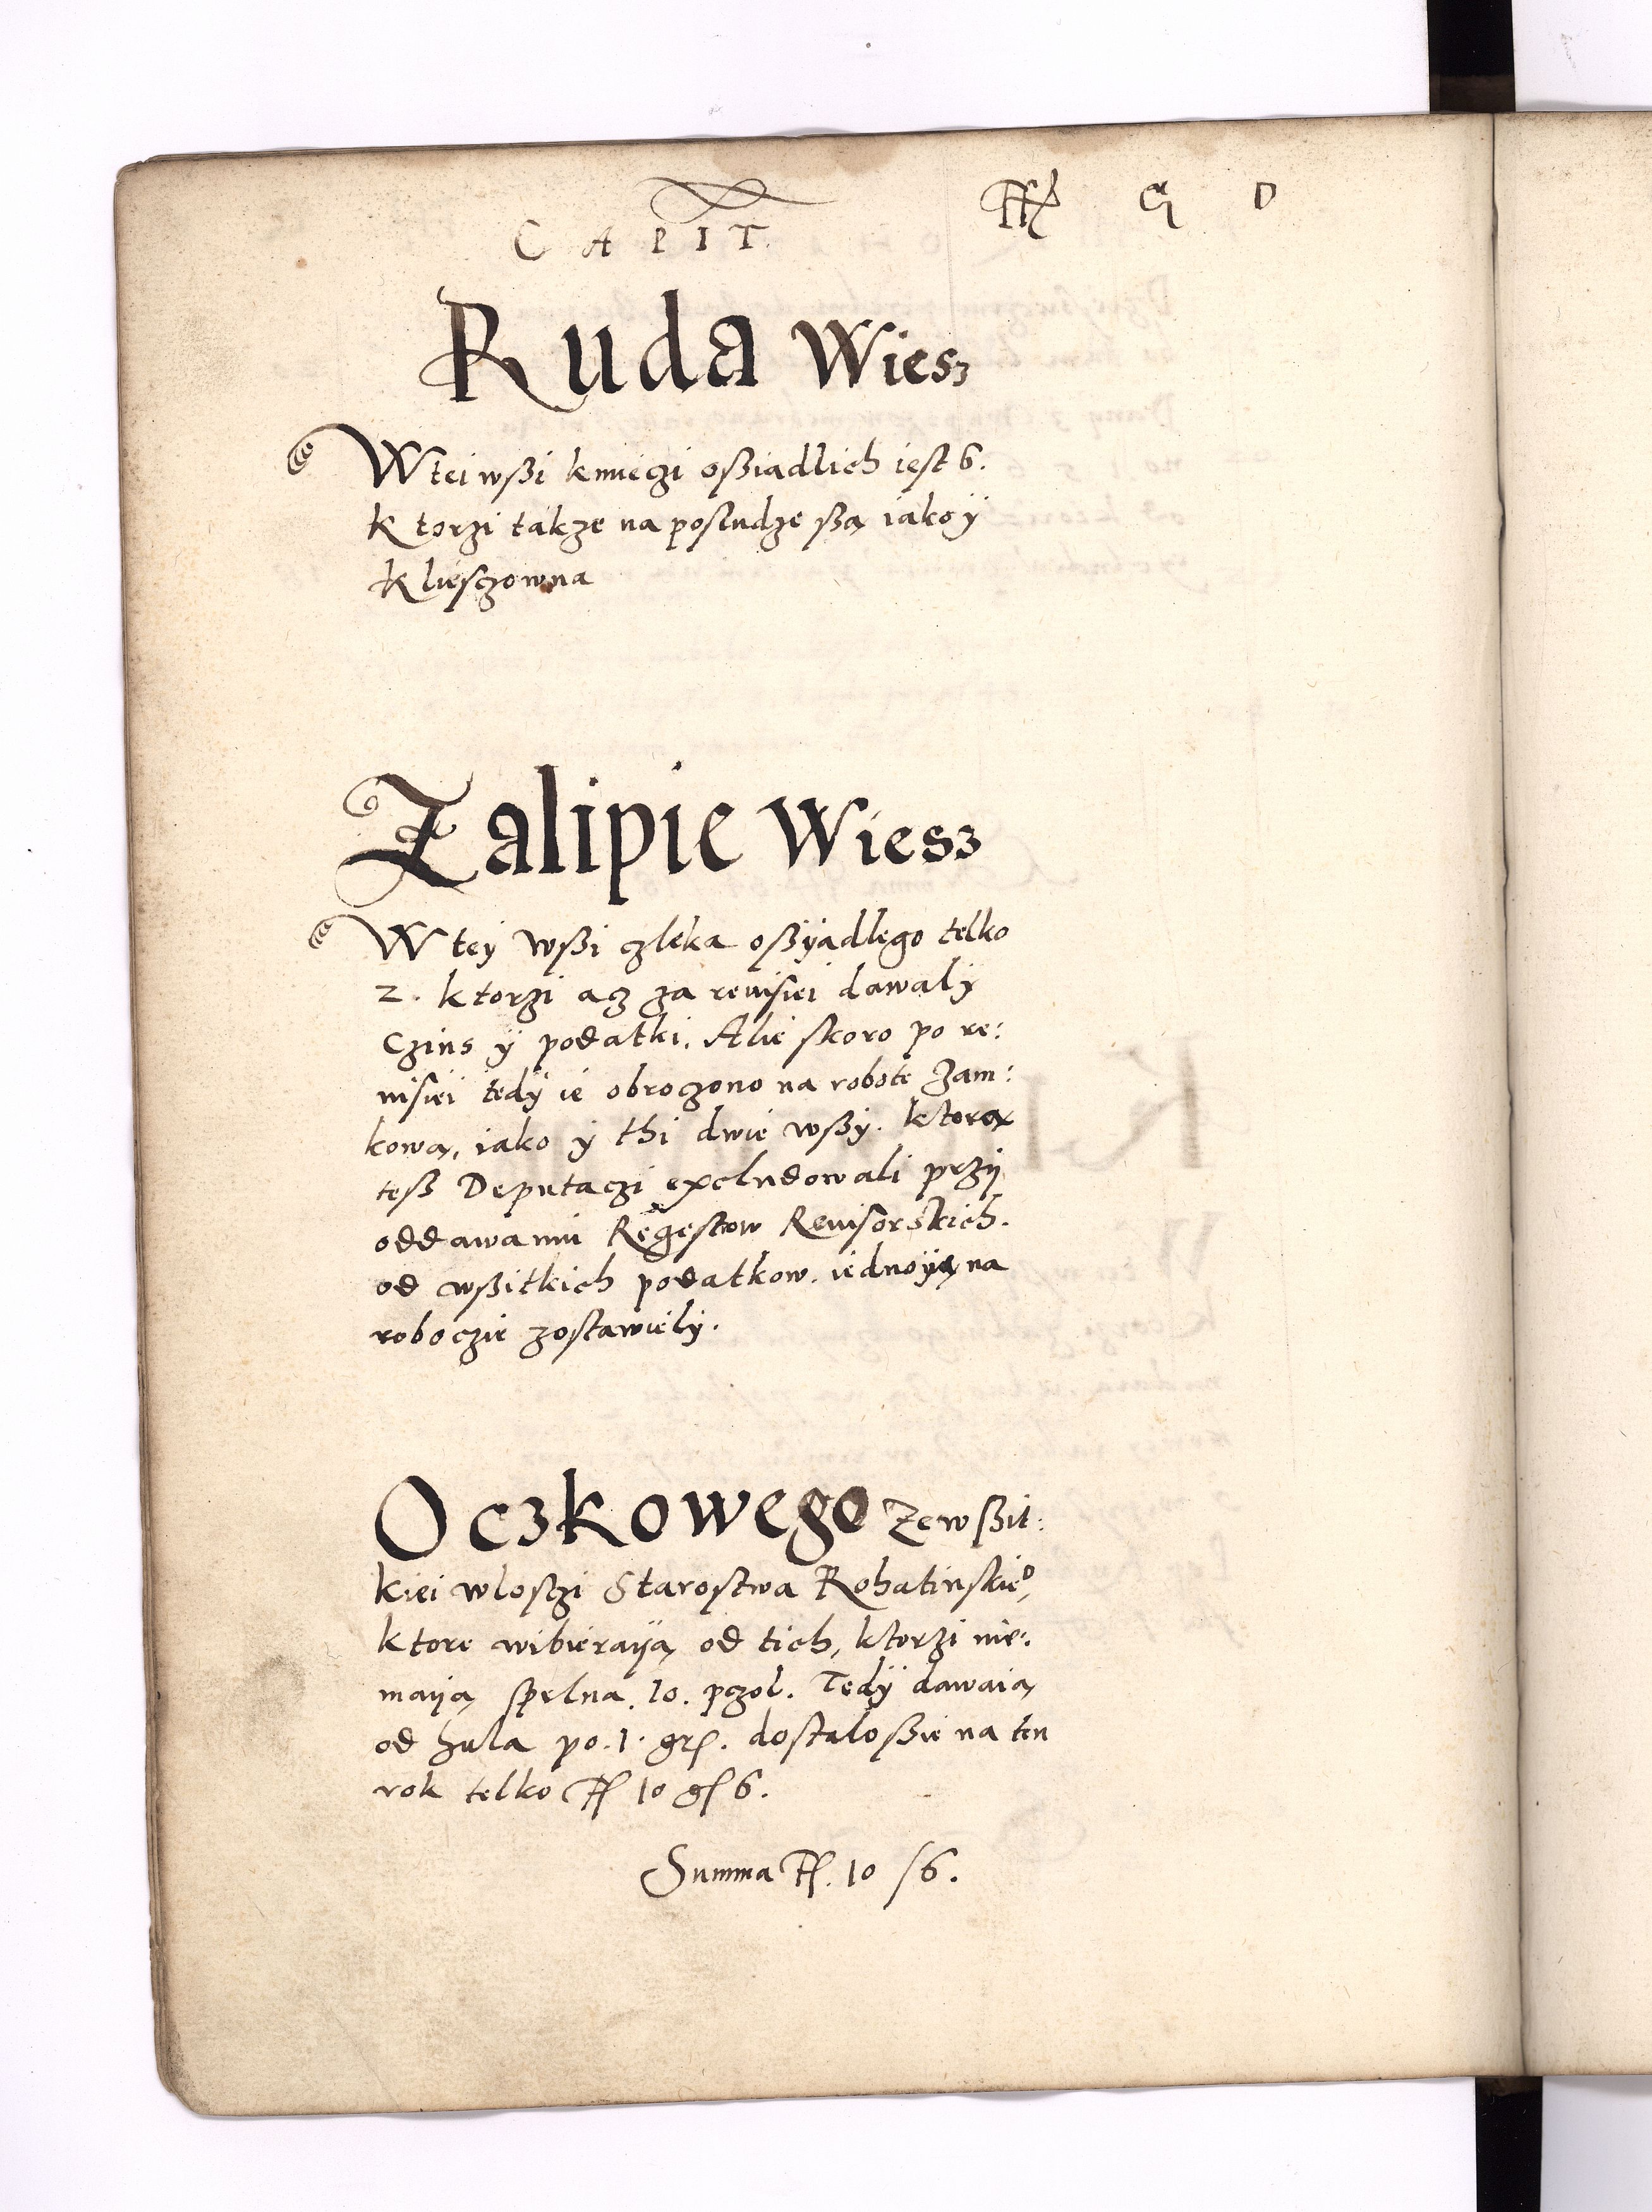 CAPIT. Fl G D
Ruda Wiesz
W tei wßi kmieczi oßiadlich iest 6.
Ktorzi takze na posludze ßą iako ÿ
Klieśczowna
Zalipie Wiesz
W tey wßi czleka oßÿadlego telko
2. Ktorzi acz za reuisiei dawalÿ
Czins ÿ podatki. Alie skoro po re:
uisiei tedÿ ie obroczono na robote zam:
kową, iako ÿ thi dwie wßÿ. Ktorą
teß Deputaczi excludowali przÿ
oddawaniu Regestow Reuisorskich.
od wßitkich podatkow. iedno ÿą na
roboczie zostawielÿ.
Oczkowego ze wßit:
kiei wlosczi Starostwa Rohatinskieo,
Ktore wibieraÿą od tich, Ktorzi nie:
maÿą spelna. 10. pczol. Tedÿ dawaią
od Hula po. 1. gr. dostalo ßie na ten
rok telko Fl 10 g 6.
Summa Fl. 10 / 6.